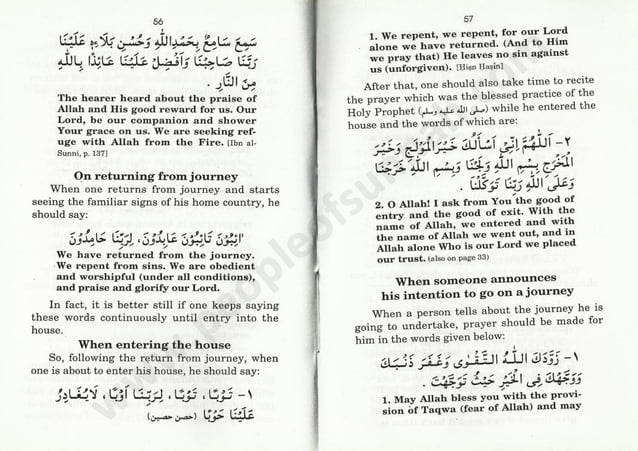 56
سَمِعَ سَامِعٌ بِحَمْدِاللّٰهِ وَحُسْنِ بَلَاءِهٖ عَلَيْنَا
رَبَّنَا صَاحِبْنَا وَاَفْضِلْ عَلَيْنَا عَائِذًا بِاللّٰهِ
مِنَ النَّارِ .
The hearer heard about the praise of
Allah and His good reward for us. Our
Lord, be our companion and shower
Your grace on us. We are seeking ref-
uge with Allah from the Fire. [Ibn al-
Sunni, p. 137]
On returning from journey
When one returns from journey and starts
seeing the familiar signs of his home country, he
should say:
اٰئِبُوْنَ تَائِبُوْنَ عَابِدُوْنَ، لِرَبِّنَا حَامِدُوْنَ
We have returned from the journey.
We repent from sins. We are obedient
and worshipful (under all conditions),
and praise and glorify our Lord.
In fact, it is better still if one keeps saying
these words continuously until entry into the
house.
When entering the house
So, following the return from journey, when
one is about to enter his house, he should say:
١- تَوْبًا، تَوْبًا، لِرَبِّنَا اَوْبًا، لَايُغَادِرُ
عَلَيْنَا حَوْبًا (حصن حصين)
57
1. We repent, we repent, for our Lord
alone we have returned. (And to Him
we pray that) He leaves no sin against
us (unforgiven). [Hisn Hasin]
After that, one should also take time to recite
the prayer which was the blessed practice of the
Holy Prophet (صلى الله عليه وسلم) while he entered the
house and the words of which are:
٢- اَللّٰهُمَّ اِنِّيْ اَسْأَلُكَ خَيْرَالْمَوْلَجِ وَخَيْرَ
الْمَخْرَجِ بِسْمِ اللّٰهِ وَلَجْنَا وَبِسْمِ اللّٰهِ خَرَجْنَا
وَعَلَى اللّٰهِ رَبِّنَا تَوَكَّلْنَا .
2. O Allah! I ask from You the good of
entry and the good of exit. With the
name of Allah, we entered and with
the name of Allah we went out, and in
Allah alone Who is our Lord we placed
our trust. (also on page 33)
When someone announces
his intention to go on a journey
When a person tells about the journey he is
going to undertake, prayer should be made for
him in the words given below:
١- زَوَّدَكَ اللّٰهُ التَّقْوٰى وَغَفَرَ ذَنْبَكَ
وَوَجَّهَكَ فِى الْخَيْرِ حَيْثُ تَوَجَّهْتَ .
1. May Allah bless you with the provi-
sion of Taqwa (fear of Allah) and may